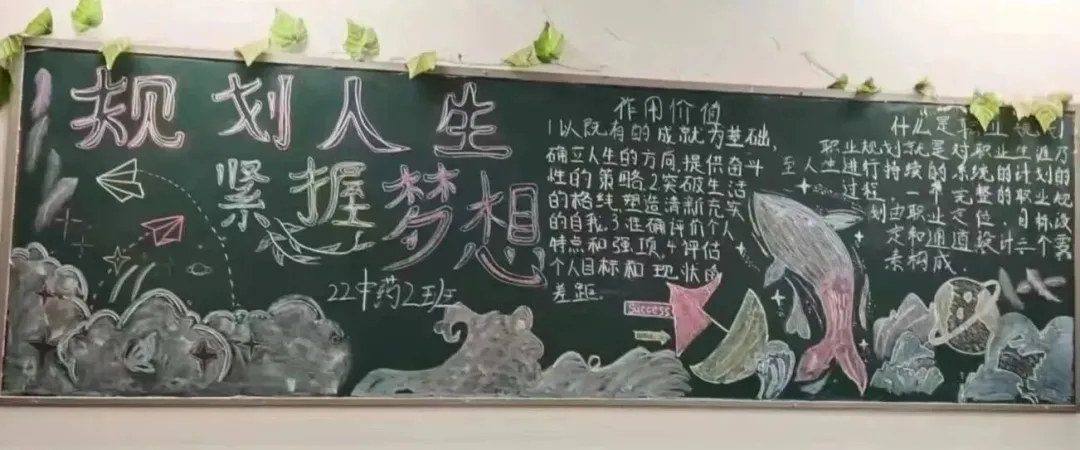 规划人生
紧握梦想
22中药2班
作用价值
1以既有的成就为基础,
确立人生的方向,提供奋斗
性的策略2突破生活
的格线,塑造清新充实
的自我,3准确评价个人
特点和强项,4评估
个人目标和现状的
差距.
Success
什么是职业规划
职业规划就是对职业生涯乃
至人生进行持续的系统的计划的
过程,一个完整的职业规
划由职业定位、目标设
定和通道设计三个要
素构成.